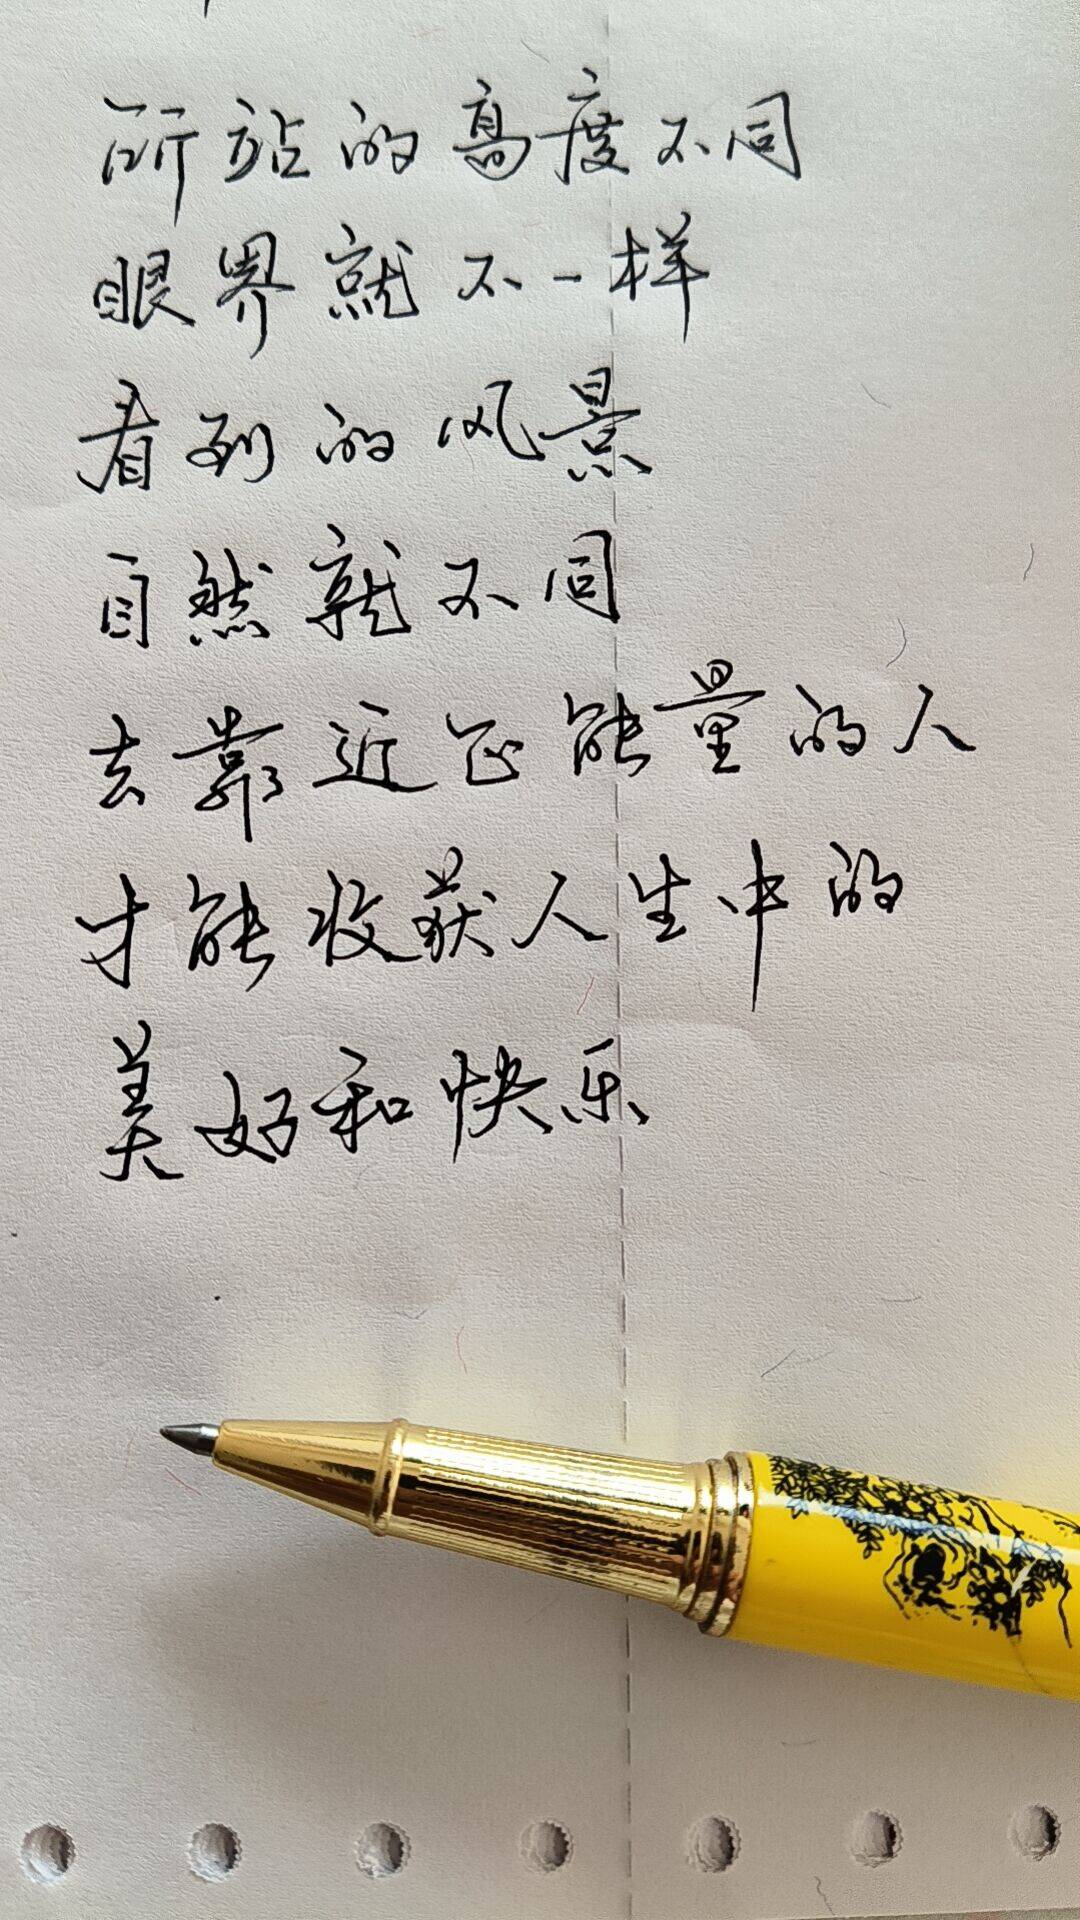 所站的高度不同
眼界就不一样
看到的风景
自然就不同
去靠近正能量的人
才能收获人生中的
美好和快乐